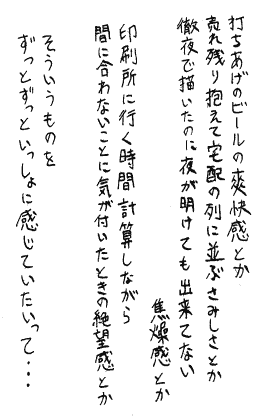 打ちあげのビールの爽快感とか
売れ残り抱えて宅配の列に並ぶさみしさとか
徹夜で描いたのに夜が明けても出来てない
焦燥感とか
印刷所に行く時間計算しながら
間に合わないことに気が付いたときの絶望感とか
そういうものを
ずっとずっといっしょに感じていたいって・・・